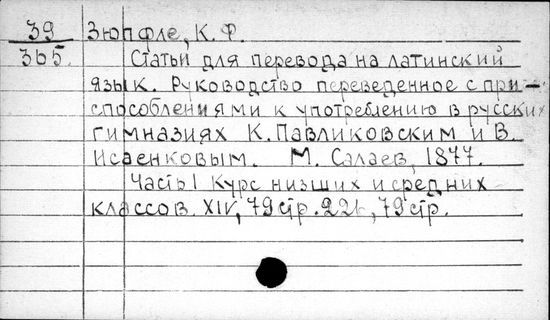 39 Зюпфле, К. Ф.
365. Статьи для перевода на латинский
язык. Руководство переведенное с при-
способлениями к употреблению в русских
гимназиях К. Павликовским и В.
Исаенковым. М. Салаев, 1877.
Часть I Курс низших и средних
классов. XIV, 79 стр. 221, 79 стр.